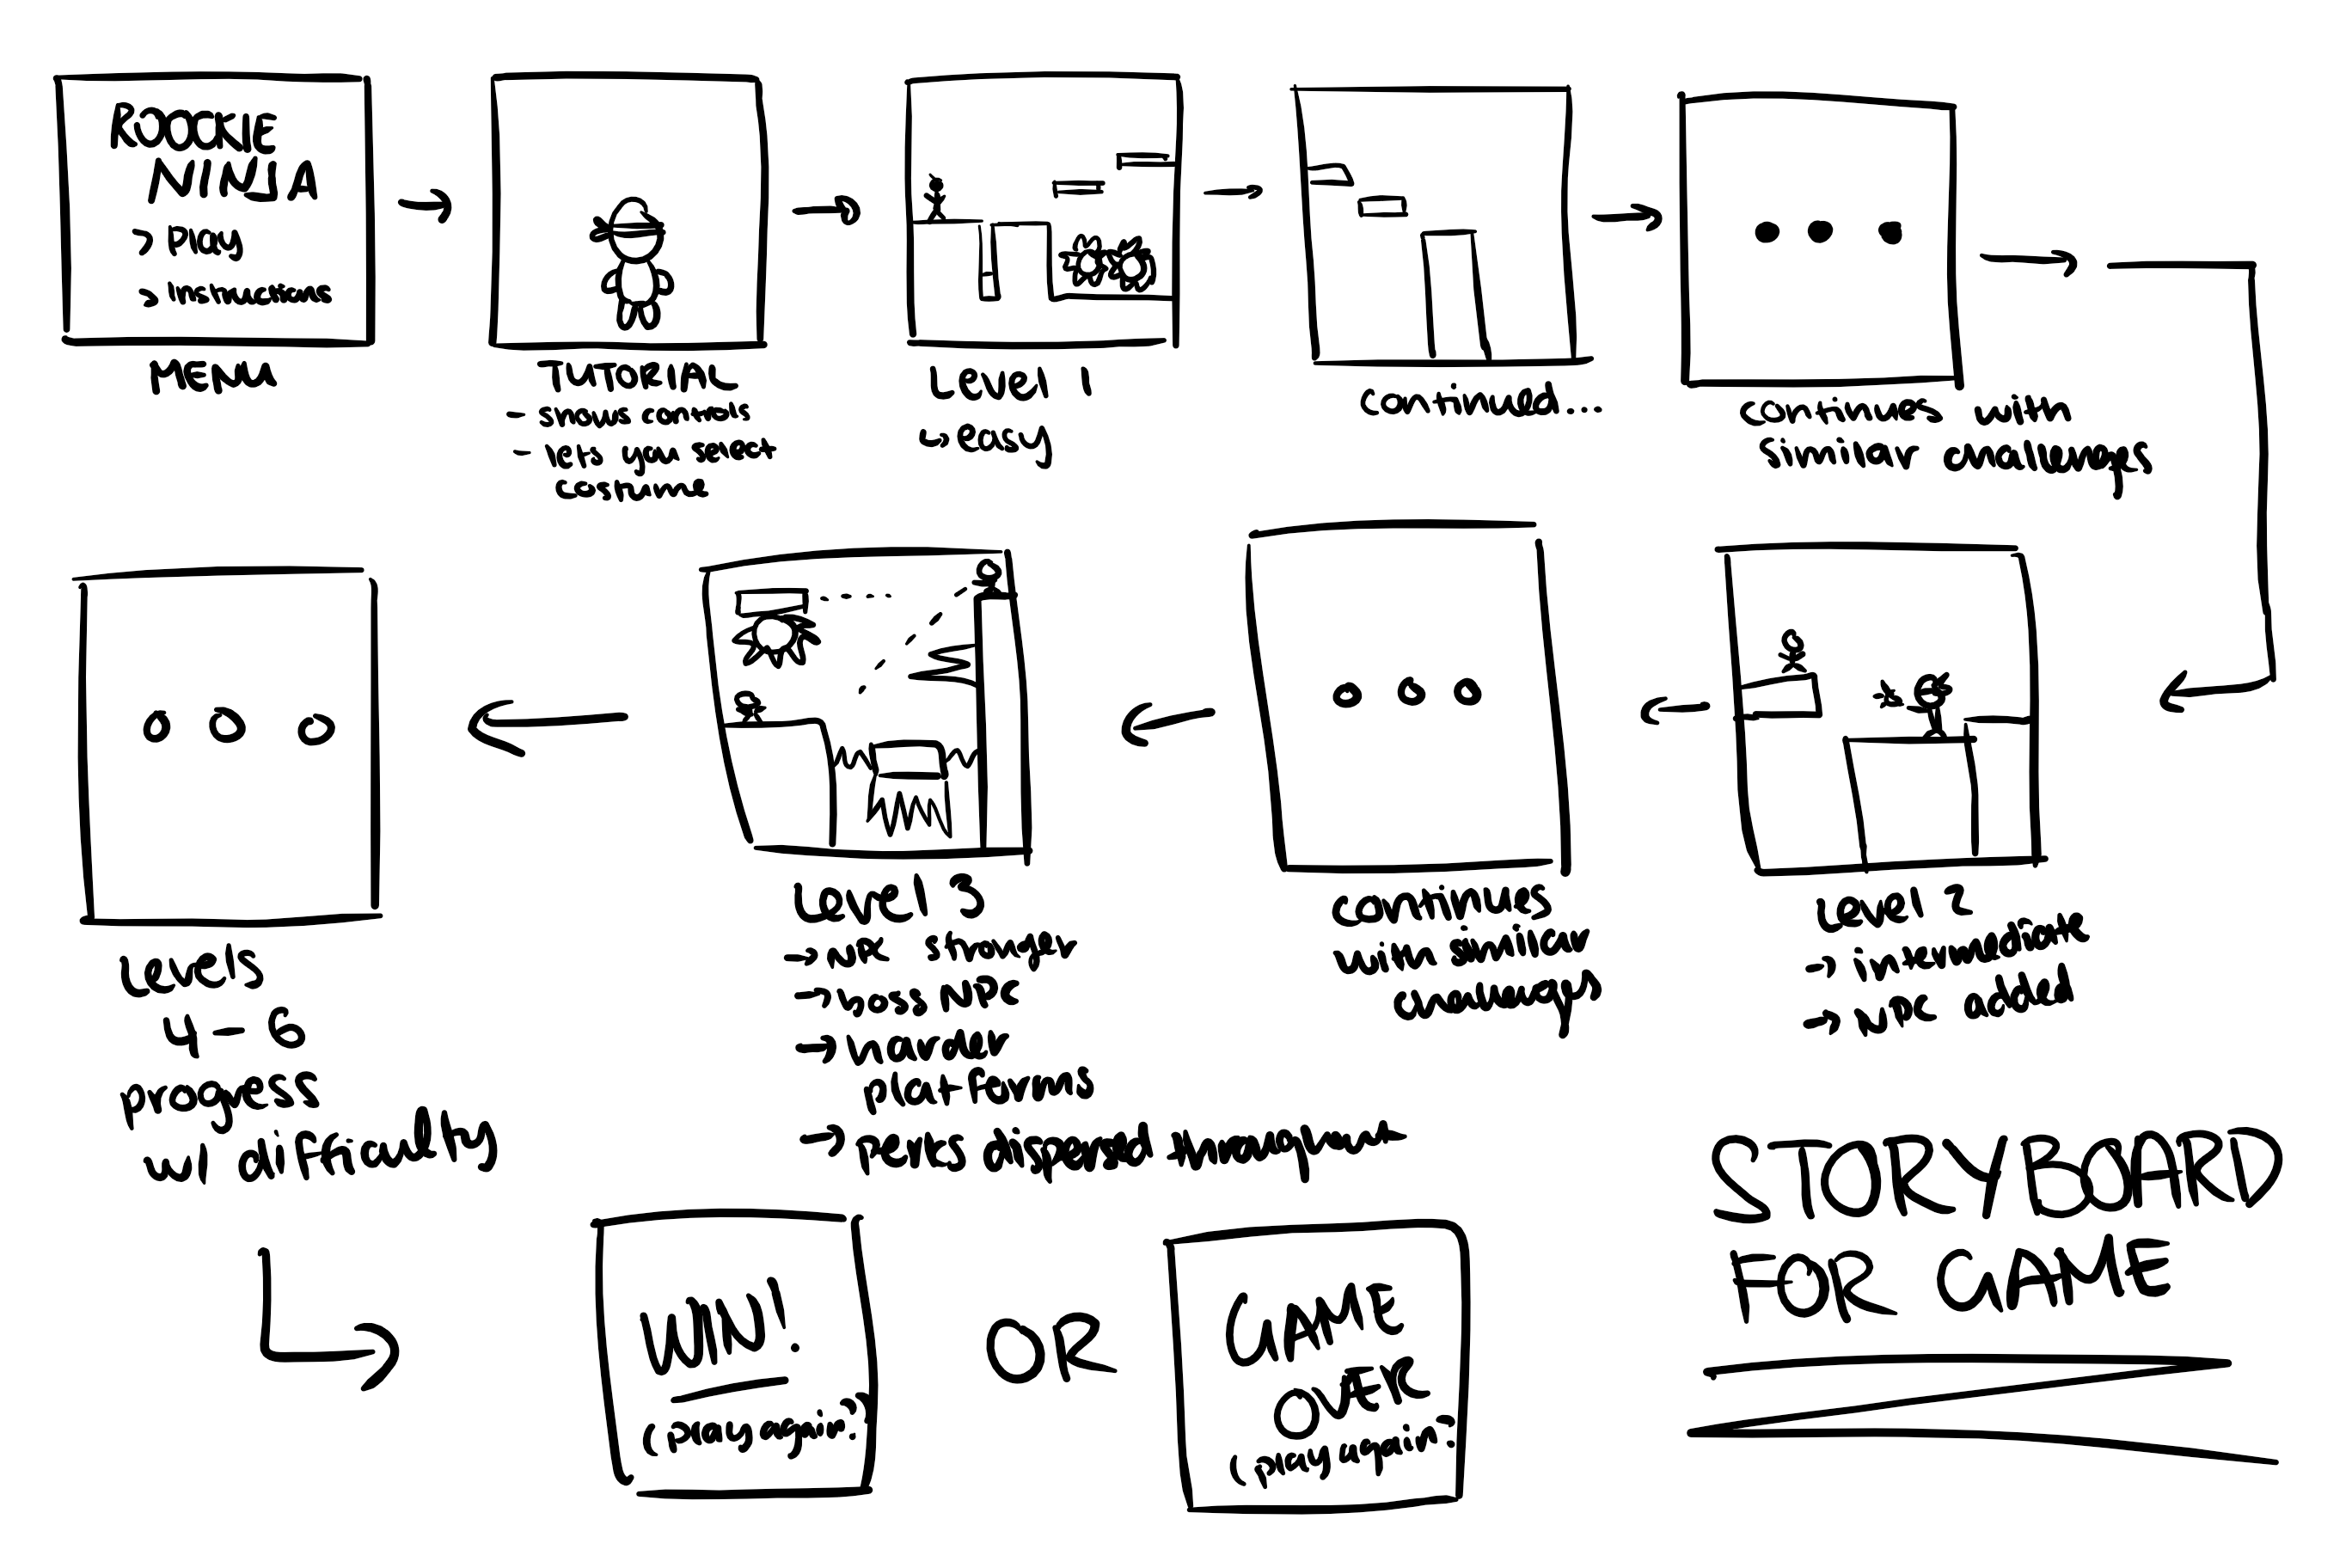 ROOKIE
NINJA
> Play
> instructions
MENU
TUTORIAL
- shows controls
- lets you select
costume
Level 1
↳ easy
continued...
continues with
similar challenges
Level 2
→ intermediate
→ NPC added
continues
with similar
challenges
Level 3
→ NPC stronger
→ boss NPC
→ harder
platforms
→ perks dispersed throughout
Levels
4-6
progress
w/ difficulty
WIN!
(play again?)
OR
GAME
OVER
(play again?
STORYBOARD
FOR GAME